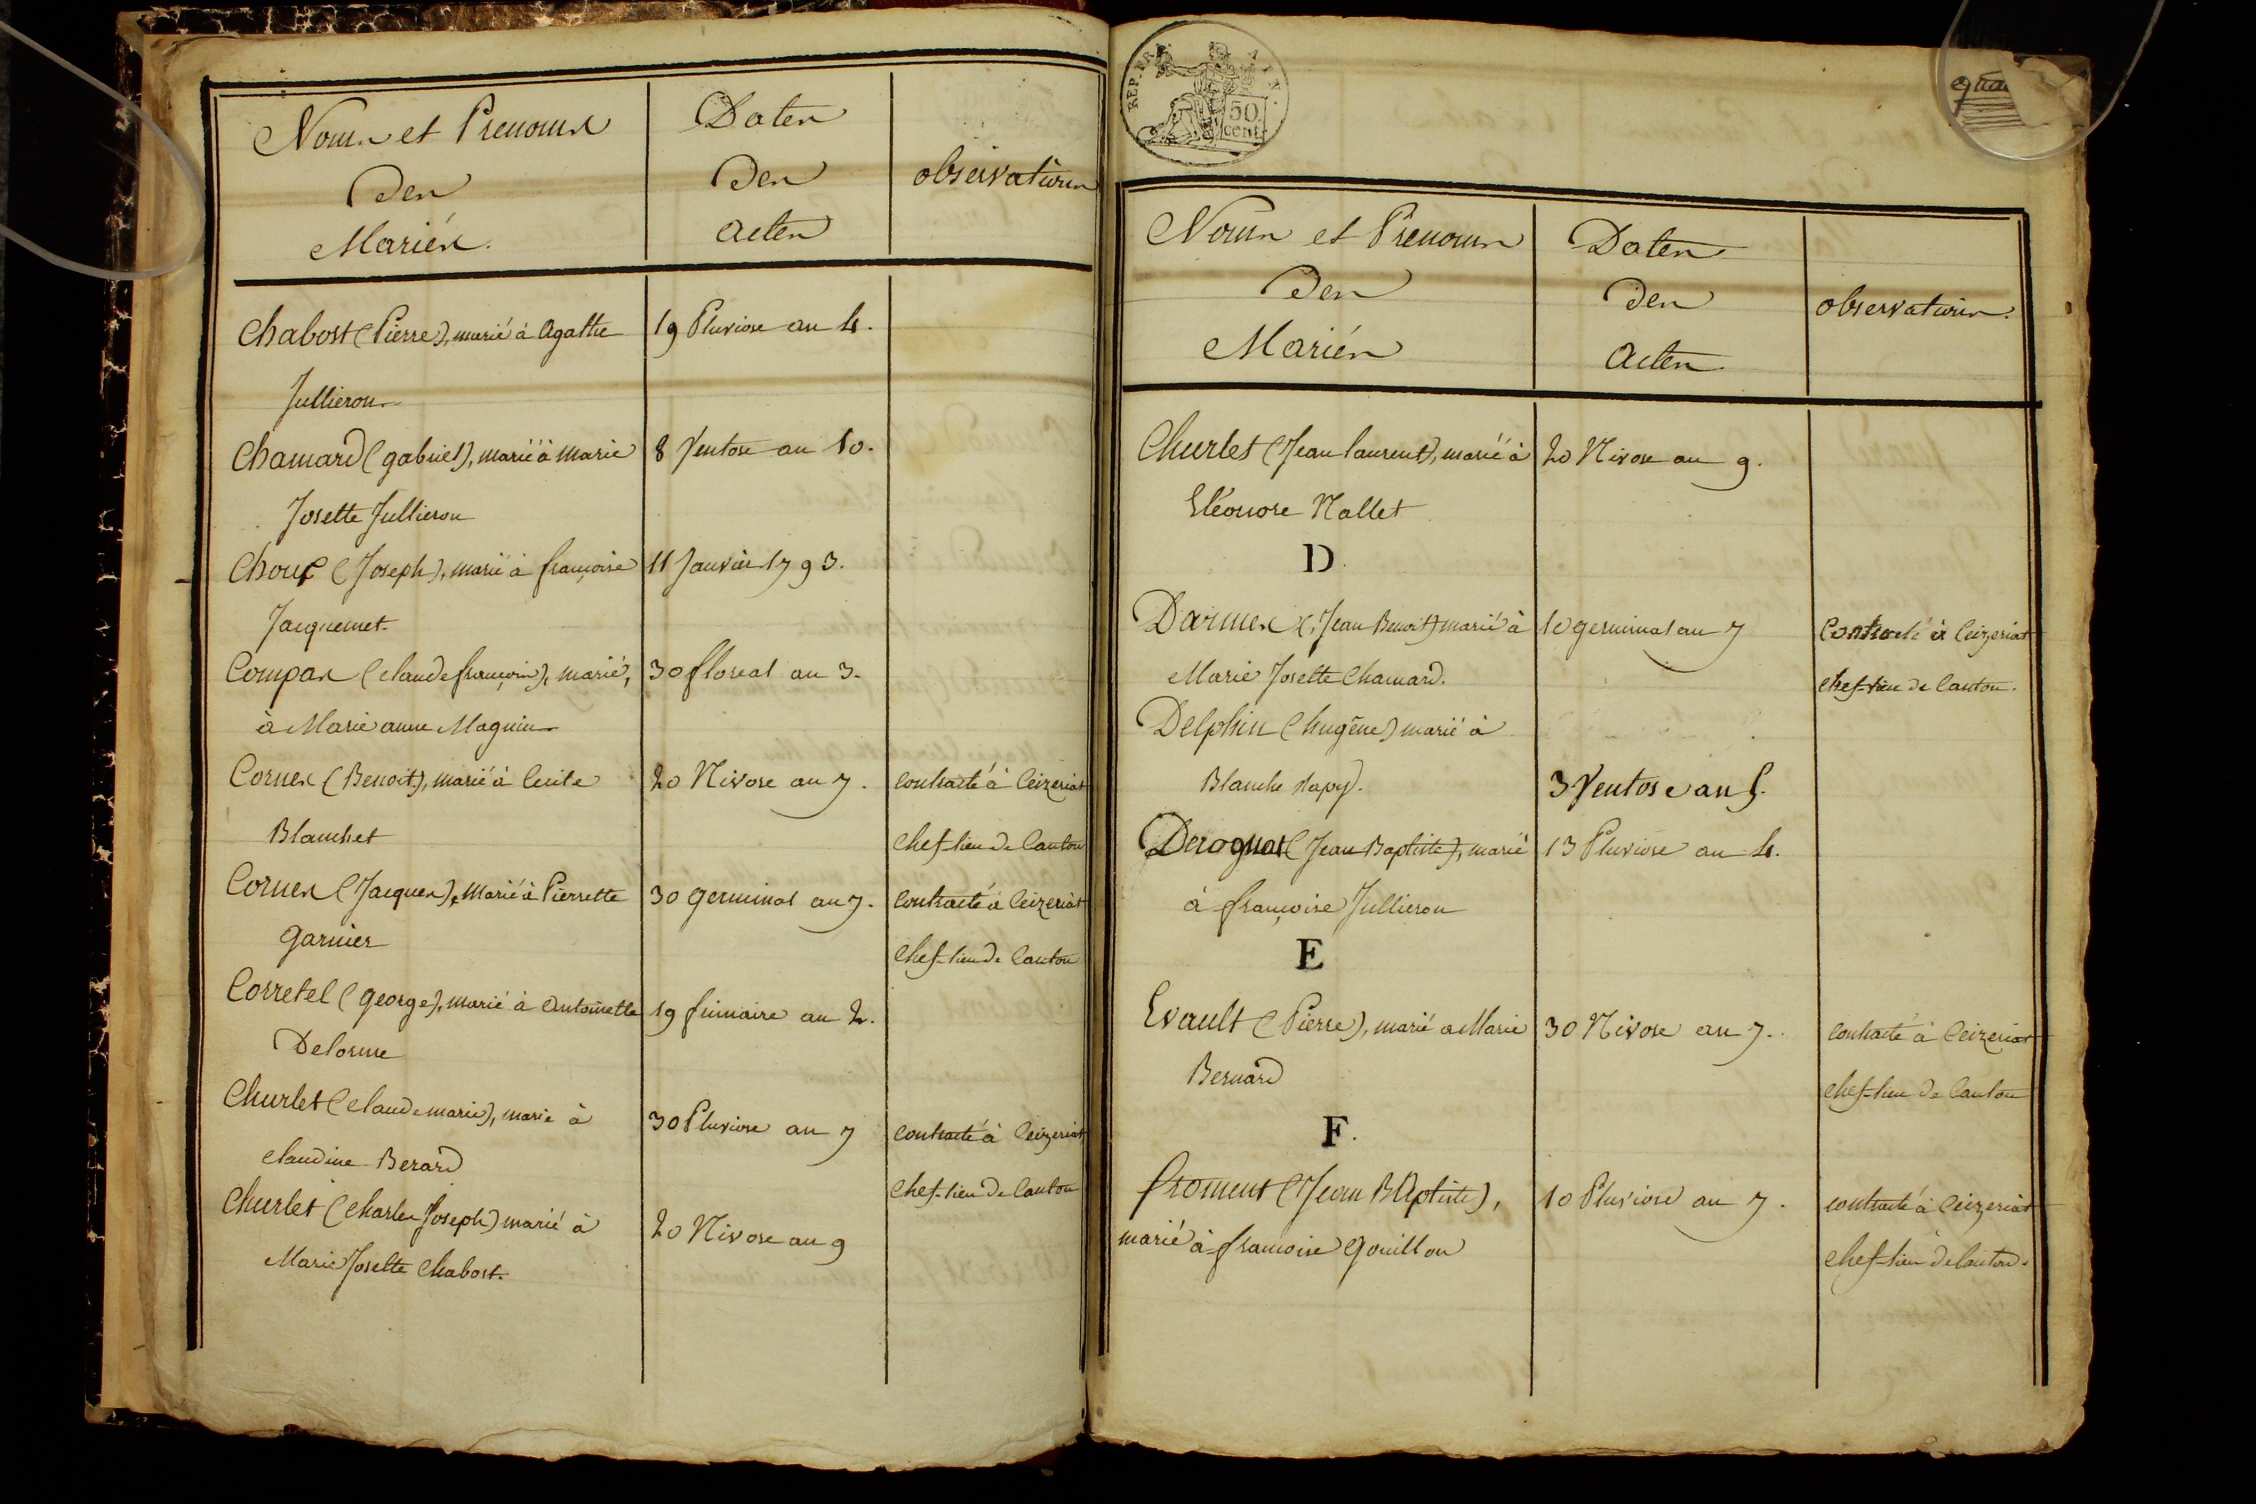 Noms et Prenoms
Des
Mariés.
Dates
Des
actes
observations
Chabost (Pierre), marié à Agathe
Jullieron
19 Pluviose an 4.
Chamard (gabriel), marié à marie
Josette Jullieron
8 Ventose an 10.
Choux (Joseph), marié à françoise
Jacquemet
11 Janvier 1793.
Compas (claude françois), marié,
à Marie anne Magnin
30 floreal an 3.
Cornes (Benoit), marié à Cecile
Blanchet
20 Nivose an 7.
contracté à Ceizeriat
chef-lieu de Canton
Cornes (Jacques), marié à Pierrette
garnier
30 germinal an 7.
contracté à Ceizeriat
chef-lieu de Canton
Corretel (george), marié à Antoinette
Delorme
19 frimaire an 2.
Churlet (claude marie), marié à
claudine Berard
30 Pluviose an 7
contracté à Ceizeriat
chef-lieu de Canton
Churlet (charles Joseph) marié à
Marie Josette Chabost.
20 Nivose an 9
REP. FRA
50
cent.
Noms et Prenoms
Des
Mariés
Dates
Des
Actes
observations.
Churlet (Jean laurent), marié à
Eléonore Nallet
20 Nivose an 9.
D.
Darmes (Jean Benoit) marié à
Marie Josette Chamard.
10 germinal an 7
Contracté à Ceizeriat
chef-lieu de Canton.
Delphin (hugêne) marié à
Blanche
3 Ventose an 5.
Derognat (Jean Baptiste), marié
à françoise Jullieron
13 Pluviose an 4.
E
Evault (Pierre), marié a Marie
Bernard
30 Nivose an 7.
contracté à Ceizeriat
chef-lieu de Canton
F.
froment (Jean BAptiste),
marié à francoise gouillon
10 Pluviose an 7.
contracté à Ceizeriat
chef-lieu de Canton.